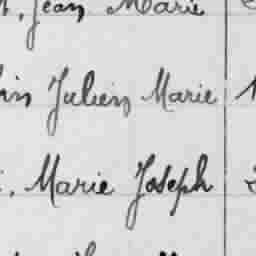 Jean Marie
Julien Marie
Marie Joseph